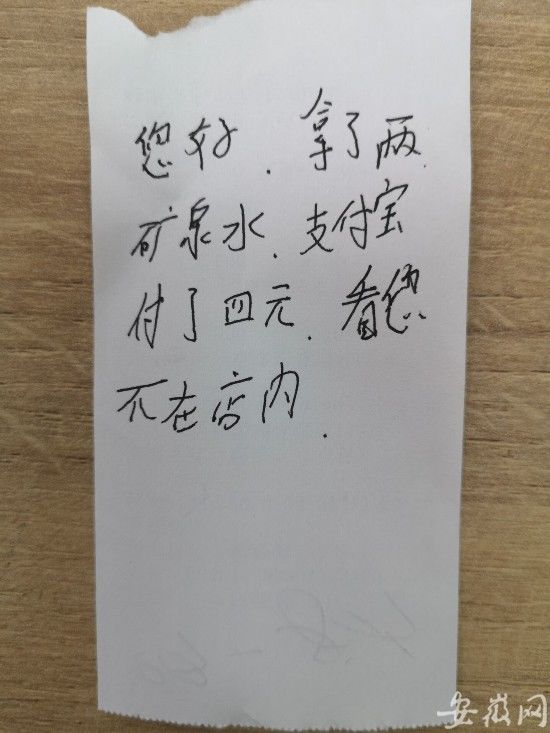 您好．拿了两
矿泉水．支付宝
付了四元．看您
不在店内．
安徽网